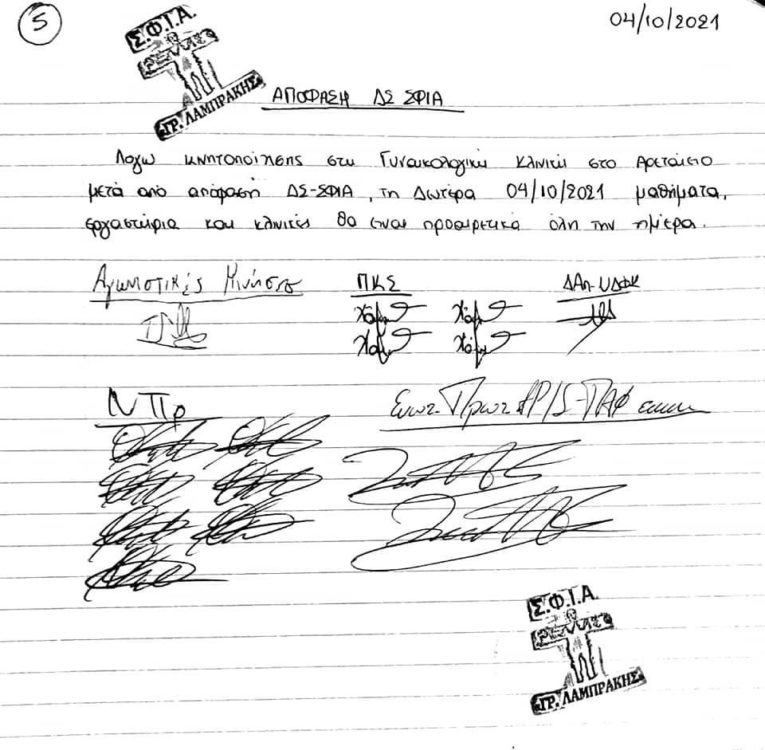 5
04/10/2021
Σ.Φ.Ι.Α.
«ΓΡ. ΛΑΜΠΡΑΚΗΣ»
ΑΠΟΦΑΣΗ ΔΣ ΣΦΙΑ
Λογω κινητοποίησης στη Γυναικολογική κλινική στο Αρεταίειο
μετά από απόφαση ΔΣ-ΣΦΙΑ, τη Δευτέρα 04/10/2021 μαθήματα,
εργαστήρια και κλινικές θα είναι προαιρετικά όλη την ημέρα.
Αγωνιστικές Κινήσεις ΠΚΣ ΔΑΠ-ΝΔΦΚ
ΝΠρ
Σ.Φ.Ι.Α.
«ΓΡ. ΛΑΜΠΡΑΚΗΣ»